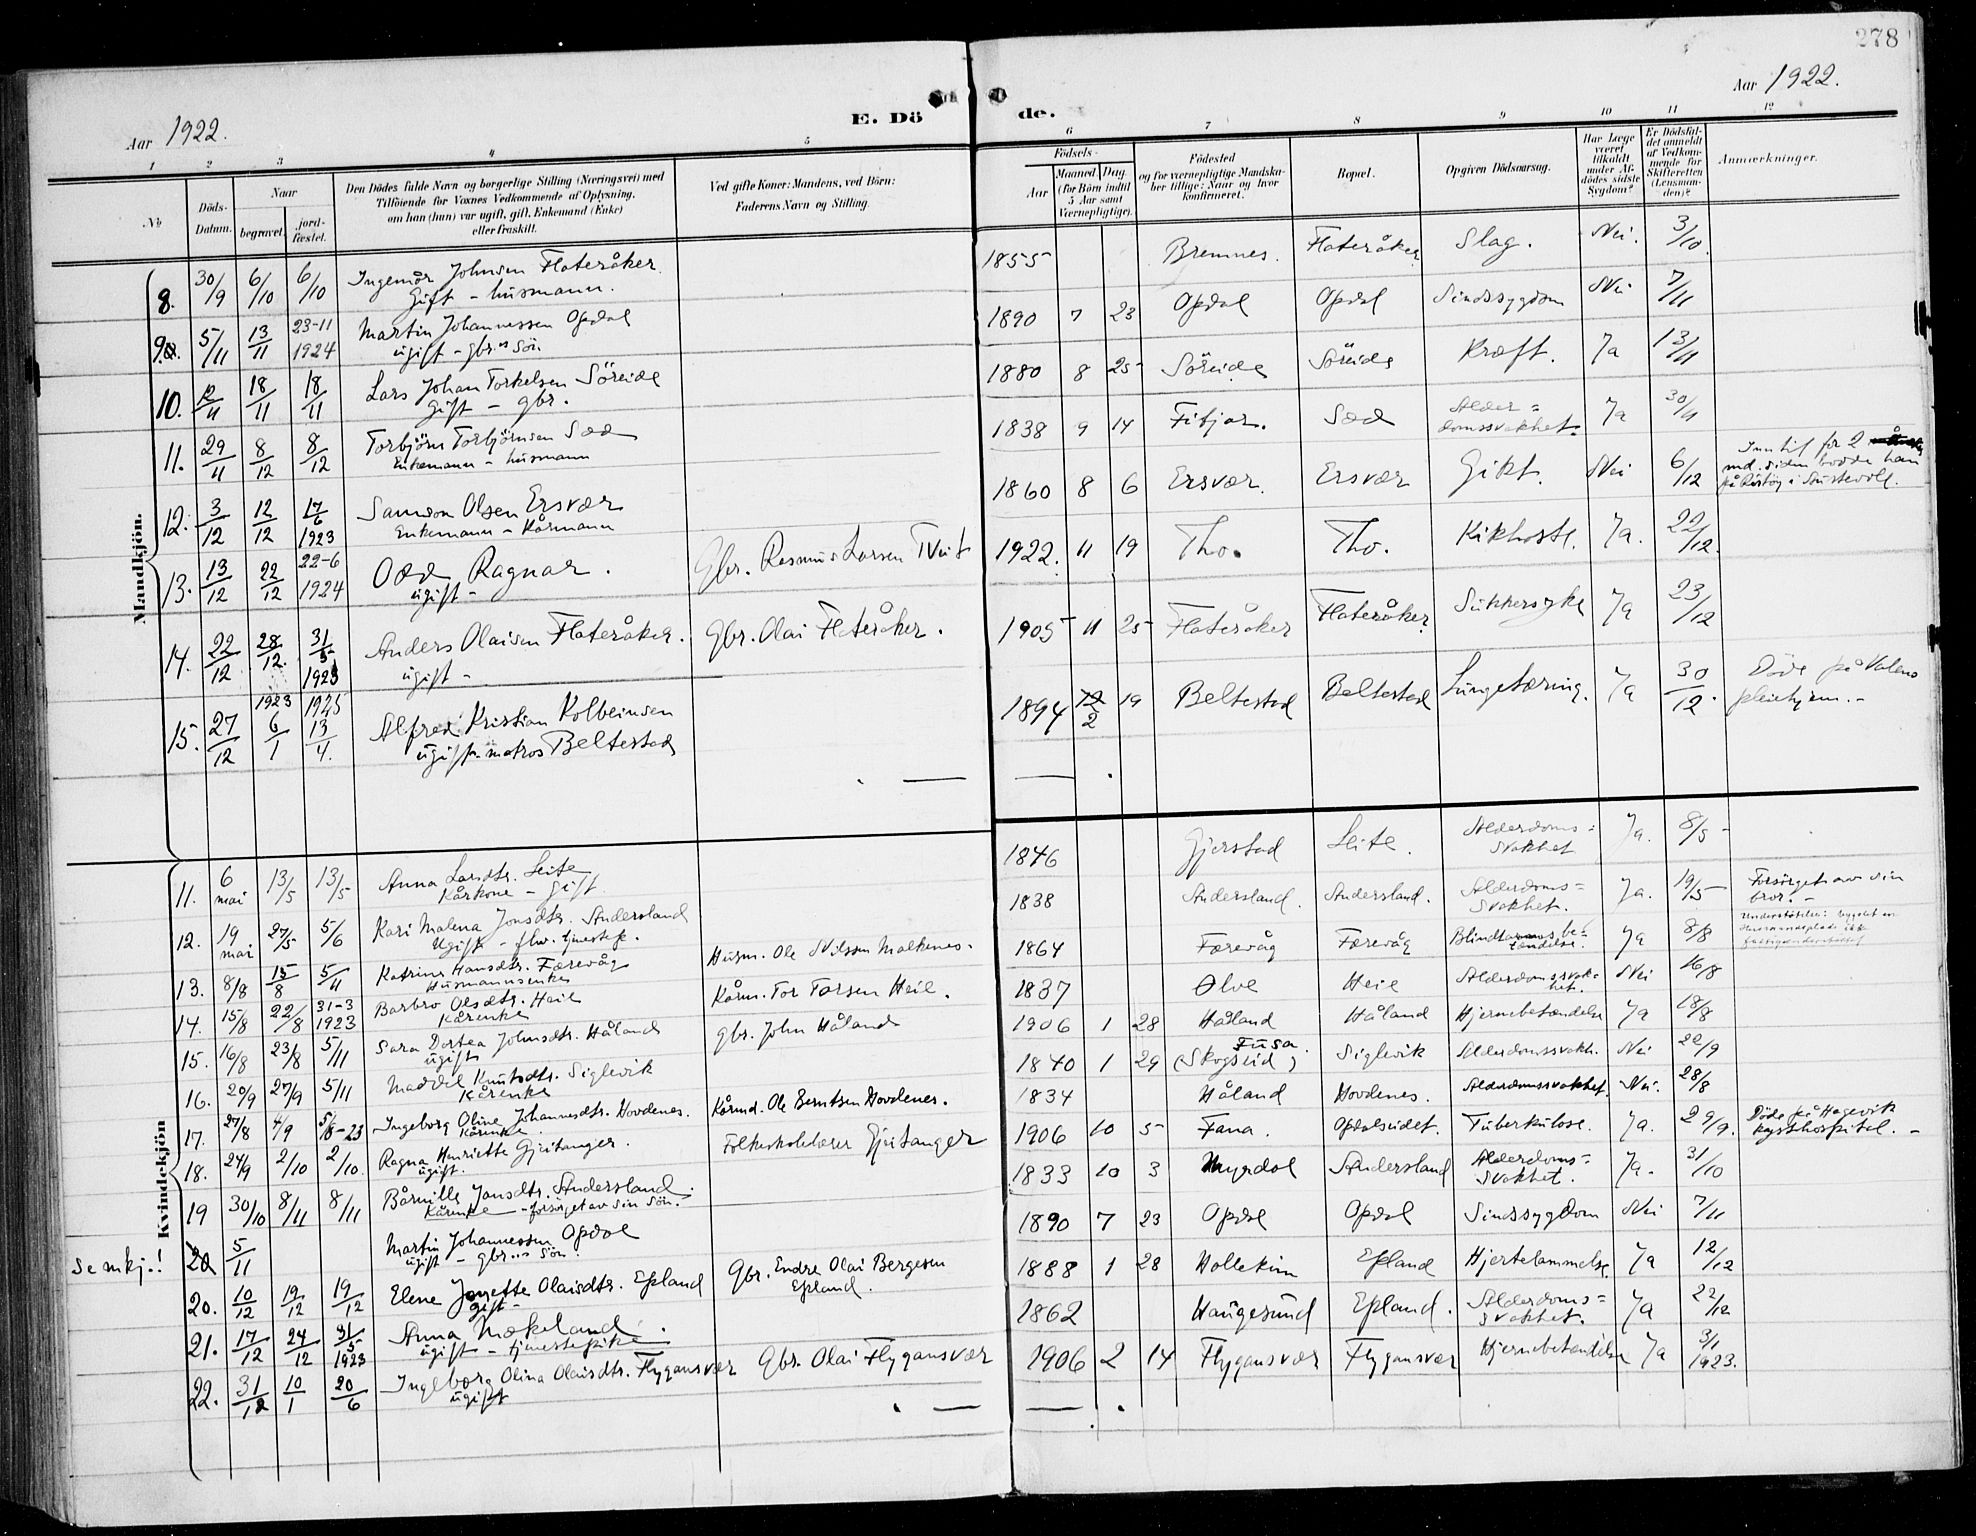 278
Aar 1922.
E. Döde.
Aar 1922.
1 2 3 4 5 6 7 8 9 10 11 12
No
Döds-Datum.
Naar
begravet.
jordfæstet.
Den Dödes fulde Navn og borgerlige Stilling (Næringsvei) med
Tilföiende for Voxnes Vedkommende af Oplysning,
om han (hun) var ugift, gift, Enkemand (Enke)
eller fraskilt.
Ved gifte Koner: Mandens, ved Börn:
Faderens Navn og Stilling.
Födsels-
Aar
Maaned Dag
(for Börn indtil
5 Aar samt
Værnepligtige).
Födested
og for værnepligtige Mandskaber tillige: Naar og hvor
konfirmeret.
Bopæl.
Opgiven Dödsaarsag.
Har Læge
været
tilkaldt
under Afdödes sidste
Sygdom?
Er Dödsfaldet anmeldt
af Vedkommende for
Skifteretten
(Lensmanden)?
Anmærkninger.
Mandkjön.
8. 30/9 6/10 6/10 Ingemår Johnsen Flateråker. 1855 Bremnes. Flateråker Slag. Nei. 3/10.
Gift - husmann.
9. 5/11 13/11 23-11 1924 Martin Johannessen Opdal 1890 7 23 Opdal Opdal Sindssygdom Nei 7/11
ugift - gbr.s sön
10. 12/11 18/11 18/11 Lars Johan Torkelsen Söreide 1880 8 25 Söreide Söreide Kræft. Ja 13/11
Gift - gbr.
11. 29/11 8/12 8/12 Torbjörn Torbjörnsen Sæd 1838 9 14 Fitjar. Sæd Alderdomssvakhet. Ja 30/11
Enkemann - husmann
12. 3/12 12/12 17/6 1923 Samson Olsen Ersvær 1860 8 6 Ersvær. Ersvær Gikt. Nei 6/12 Inntil for 2
md. siden bodde han
på i Austevoll.
Enkemann - Kårmann
13. 13/12 22/12 22-6 1924 Odd Ragnar. Gbr. Rasmus Larsen Tveit 1922. 11 19 Tho. Tho. Kikhoste. Ja. 22/12.
ugift -
14. 22/12 28/12. 31/5 1923 Anders Olaisen Flateråker. Gbr. Olai Flateråker. 1905 11 25 Flateråker Flateråker Sukkersyke Ja 23/12
ugift -
15. 27/12 1923 6/1 1925 13/4. Alfred Kristian Kolbeinsen 1894 12/2 19 Beltestad Beltestad Lungetæring. Ja 30/12. Döde på Valens
pleiehjem. -
ugift - matros Beltestad
Kvindekjön
11. 6 mai 13/5 13/5 Anna Larsdtr. Leite 1846 Gjerstad Leite. Alderdomssvakhet Ja. 8/5
Kårkone - gift
12. 19 mai 27/5 5/6 Kari Malena Jonsdtr. Andersland 1838 Andersland. Andersland. Alderdomssvakhet. Ja. 19/5 Forsörget av sin
bror. -
Ugift - fhv. tjenestep.
13. 8/8 15/8 5/11 Katrine Hansdtr. Færevåg Husm. Ole Nilssen Malkenes. 1864 Færevåg Færevåg Blindtarmsbetændelse. Ja 8/8
Husmannsenke
14. 15/8 22/8 31-3 1923 Barbro Olsdtr. Heie Kårm. Tor Torsen Heie. 1837 Ølve Heie Alderdomssvakhet. Nei 16/8
Kårenke
15. 16/8 23/8 5/11 Sara Dortea Johnsdtr. Håland gbr. John Håland 1906 1 28 Håland Håland Hjernebetændelse Ja 18/8
ugift
16. 20/9 27/9 5/11 Maddel Knutsdtr. Siglevik 1840 1 29 Fusa. (Skogseid) Siglevik Alderdomssvakh. Nei 22/9
Kårenke
17. 27/8 4/9 5/8-23 Ingeborg Oline Johannesdtr. Hovdenes. Kårmd. Ole Berntsen Hovdenes. 1834 Håland Hovdenes. Alderdomssvakhet. Nei. 28/8
Kårenke
18. 24/9 2/10 2/10. Ragna Henriette Gjeitanger. Folkeskolelærer Gjeitanger 1906 10 5 Fana. Opdalseidet. Tuberkulose. Ja. 29/9. Döde på Hagevik
kysthospital. -
ugift.
19 30/10 8/11 8/11 Bårnille Jonsdtr. Andersland. 1833 10 3 Myrdal Andersland Alderdomssvakhet. Ja. 31/10
Kårenke - forsörget av sin sön.
Se mkj.! 20 5/11 Martin Johannessen Opdal 1890 7 23 Opdal Opdal Sindssygdom Nei 7/11
ugift - gbr.s sön.
20. 10/12 19/12 19/12 Elene Jonette Olaisdtr. Epland Gbr. Endre Olai Bergesen
Epland. 1888 1 28 Hollekim Epland Hjertelammelse Ja 12/12
gift -
21. 17/12 24/12 31/5 1923 Anna Mækeland. 1862 Haugesund Epland. Alderdomssvakhet. Ja 22/12
ugift - tjenestepike
22. 31/12 10/1 20/6 Ingeborg Olina Olaisdtr. Flygansvær Gbr. Olai Flygansvær 1906 2 14 Flygansvær Flygansvær Hjernebetændelse Ja 3/1 1923.
ugift